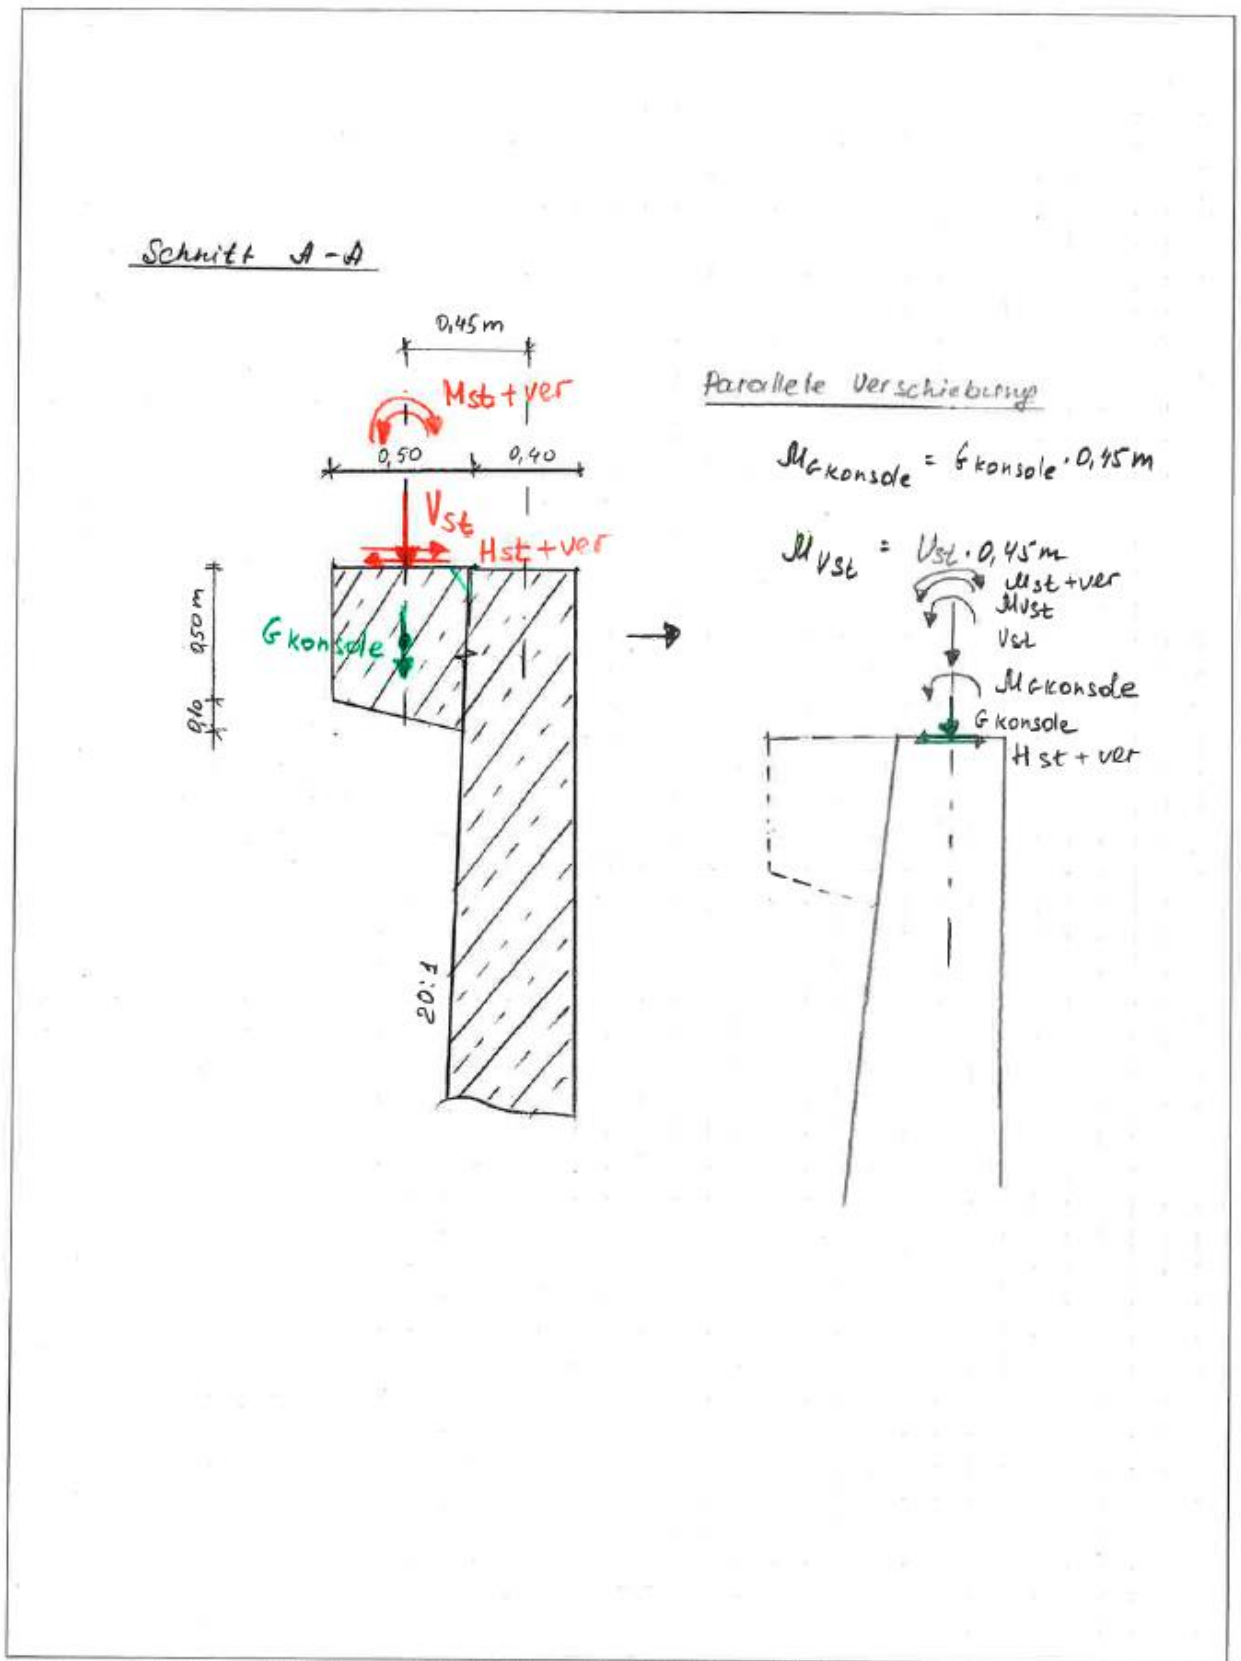 Schnitt A-A
0,45m
Mst+ver
0,50
0,40
Vst
Hst+ver
0,50m
Gkonsole
0,10
20:1
Parallele Verschiebung
MGkonsole = Gkonsole · 0,45m
MVst = Vst · 0,45m
Mst+ver
MVst
Vst
MGkonsole
Gkonsole
Hst+ver